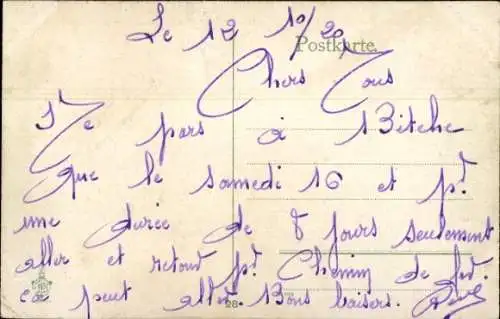 Le 12 10/20
Postkarte.
Chers Tous
Je pars à Bitche
que le samedi 16 et pr
une durée de 8 jours seulement
aller et retour pr Chemin de fer.
ca peut aller. Bons baisers.
28